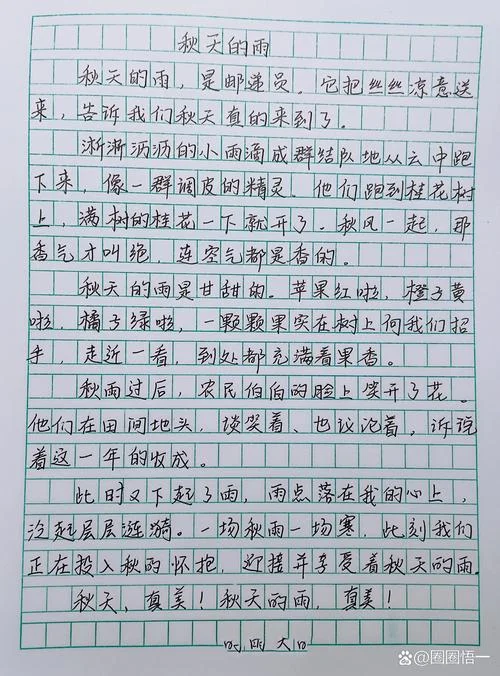 秋天的雨
秋天的雨，是邮递员，它把丝丝凉意送
来，告诉我们秋天真的来到了。
淅淅沥沥的小雨滴成群结队地从云中跑
下来，像一群调皮的精灵。他们跑到桂花树
上，满树的桂花一下就开了。秋风一起，那
香气才叫绝，连空气都是香的。
秋天的雨是甘甜的。苹果红啦，橙子黄
啦，橘子绿啦，一颗颗果实在树上向我们招
手，走近一看，到处都充满着果香。
秋雨过后，农民伯伯的脸上笑开了花。
他们在田间地头，谈笑着、也议论着，诉说
着这一年的收成。
此时又下起了雨，雨点落在我的心上，
泛起层层涟漪。一场秋雨一场寒，此刻我们
正在投入秋的怀抱，迎接并享受着秋天的雨。
秋天，真美！秋天的雨，真美！
@圈圈悟一